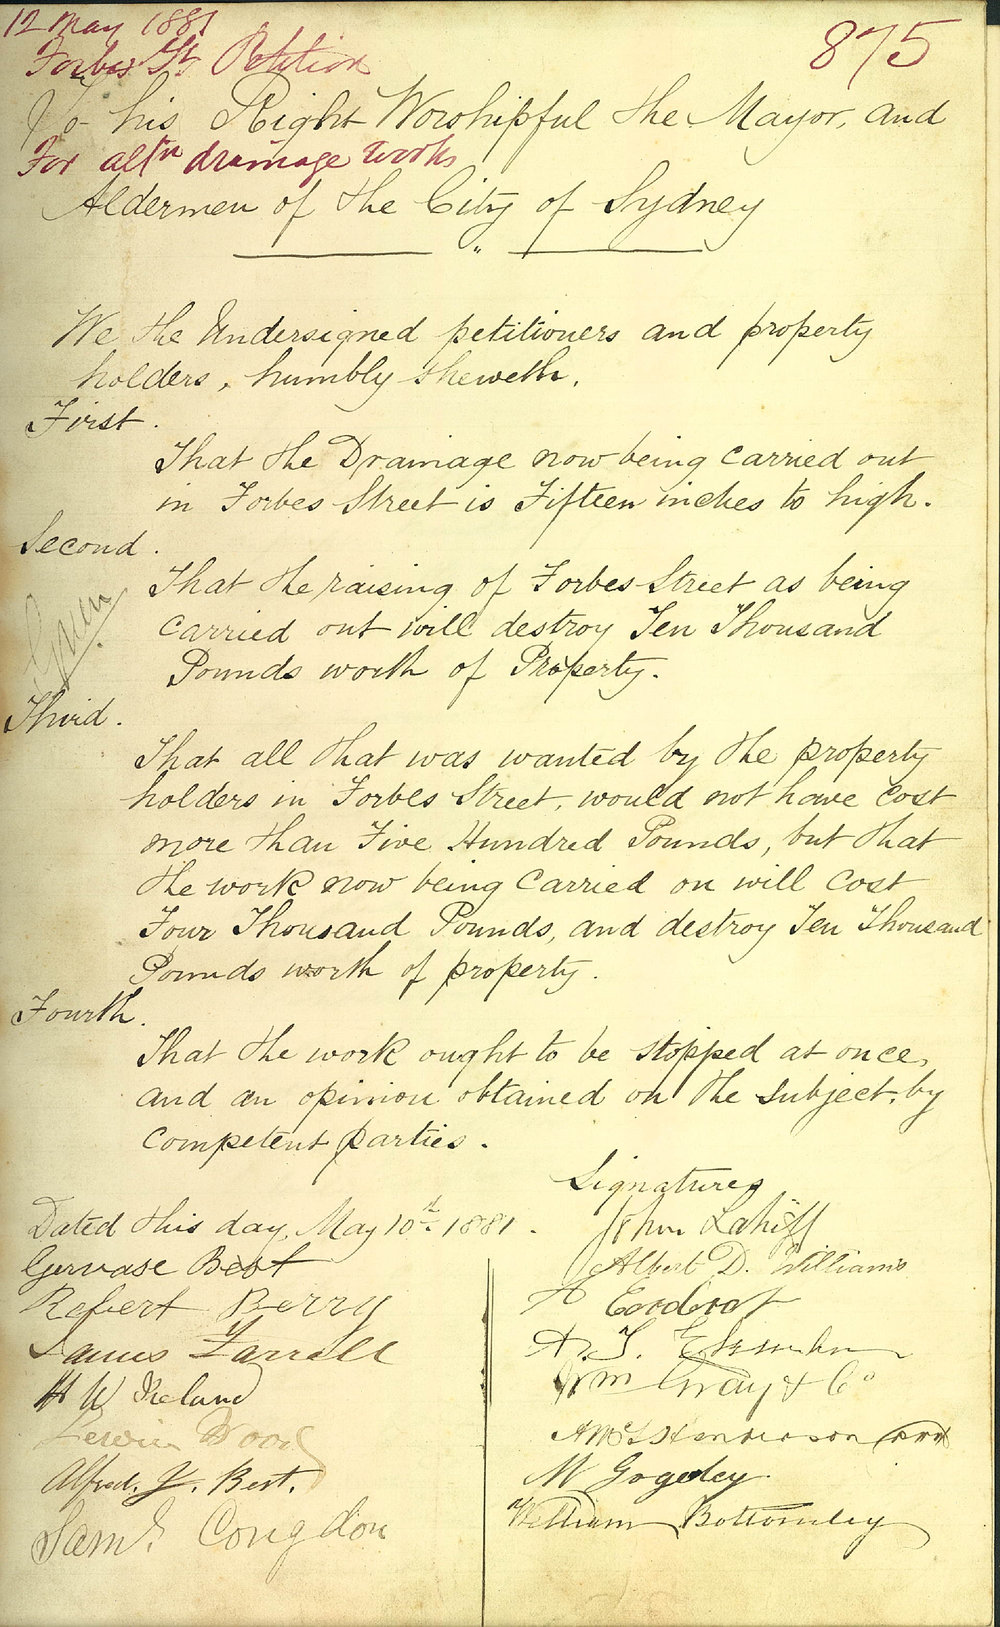 12 May 1881
875
Forbes St Petition
To his Right Worshipful the Mayor, and
For altn drainage works
Aldermen of the City of Sydney
We the Undersigned petitioners and property
holders, humbly sheweth.
First.
That the Drainage now being carried out
in Forbes Street is Fifteen inches to high.
Second.
That the raising of Forbes Street as being
carried out will destroy Ten Thousand
Pounds worth of Property.
Third.
That all that was wanted by the property
holders in Forbes Street, would not have cost
more than Five Hundred Pounds, but that
the work now being carried on will cost
Four Thousand Pounds, and destroy Ten Thousand
Pounds worth of property.
Fourth.
That the work ought to be stopped at once,
and an opinion obtained on the subject, by
competent parties.
Signatures
Dated this day, May 10th 1881.
John Lahiff
Gervase Best
Albert D. Williams
Robert Berry
James Farrell
H W Ireland
Wm Gray & Co
Lewis Wood
Henderson
Alfred. J. Best.
M Gogerley
Saml. Congdon
William Bottomley